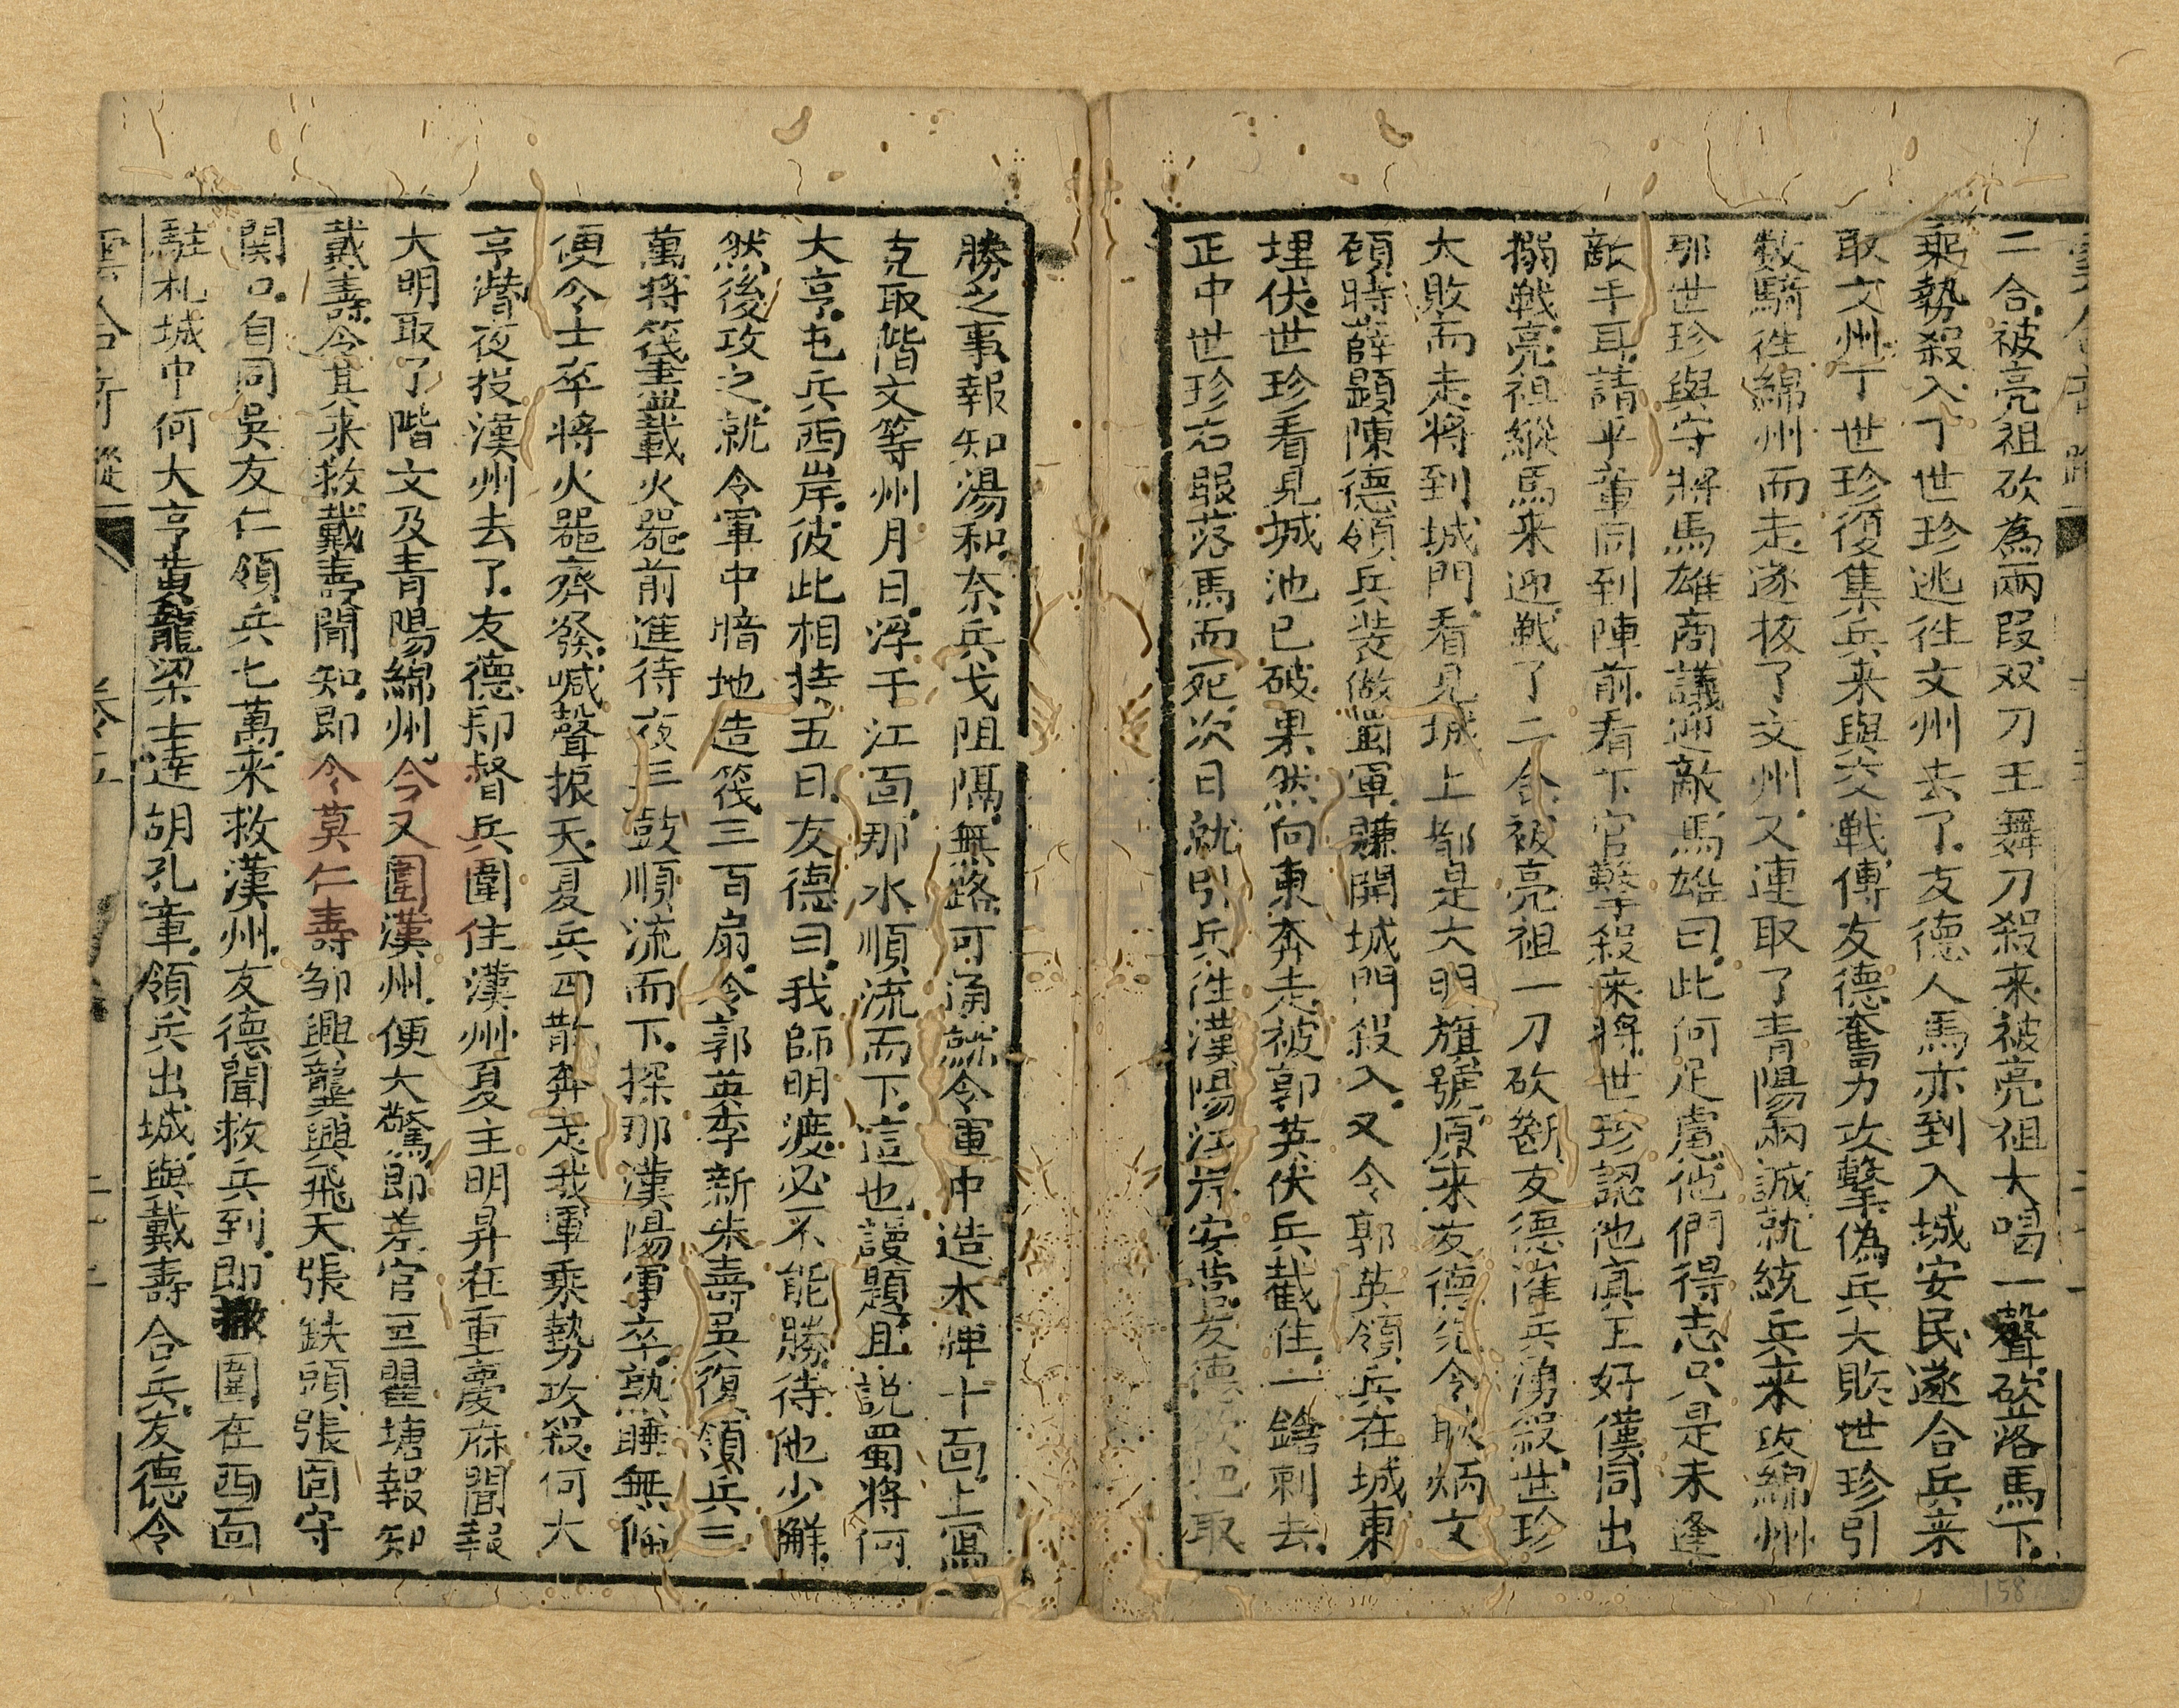 二合.被亮祖砍為兩段.双刀王舞刀殺来.被亮祖大喝一聲.砍落馬下.
乘勢殺入.丁世珍逃往文州去了.友德人馬亦到.入城安民.遂合兵来
取文州.丁世珍復集兵来與交戦.傅友德奮力攻擊.偽兵大敗.世珍引
数騎徃綿州而走.遂拔了文州.又連取了青陽兩誠.就統兵来攻綿州
那世珍與守將馬雄商議迎敵.馬雄曰.此何足慮.他們得志.只是未逢
敵手耳.請平章同到陣前.看下官擊殺来將.世珍認他真王好僕.同出
搦戦.亮祖縱馬来迎.戦了二合.被亮祖一刀砍断.友德催兵湧殺.世珍
大敗而走.將到城門.看見城上都是大明旗號.原来友德先令耿炳文
碩時薛顕陳德領兵裝做蜀軍.賺開城門殺入.又令郭英領兵在城東
埋伏.世珍看見城池已破.果然向東奔走.被郭英伏兵截住.一鎗刺去.
正中世珍右眼.落馬而死.次日就引兵徃漢陽江岸安營.友德欲把取
勝之事.報知湯和.奈兵戈阻隔.無路可通.就令軍中造木牌十面.上寫
克取階文等州月日.浮于江面.那水順流而下.這也謾題.且説蜀將何
大亨.屯兵西岸.彼此相持五日.友德曰.我師明渡.必不能勝.待他少觧.
然後攻之.就令軍中暗地造筏三百扇.令郭英李新朱壽吳復領兵三
萬.將筏盡載火噐.前進待夜三鼓順流而下.探那漢陽軍卒.熟睡無備
便令士卒將火噐齊發.喊聲振天.夏兵四散奔走.我軍乘勢攻殺.何大
亨潜夜投漢州去了.友德却督兵圍住漢州.夏主明昇在重慶府聞報
大明取了階文及青陽綿州.今又圍漢州.便大驚.即差官至瞿塘報知
戴壽.令其来救.戴壽聞知.即令莫仁壽邹興龔興飛天張鉄頭張固守
関口.自同吳友仁領兵七萬.来救漢州.友德聞救兵到.即撤圍在西面
駐札.城中何大亨黄龍梁士達胡孔章.領兵出城.與戴壽合兵.友德令
卷五